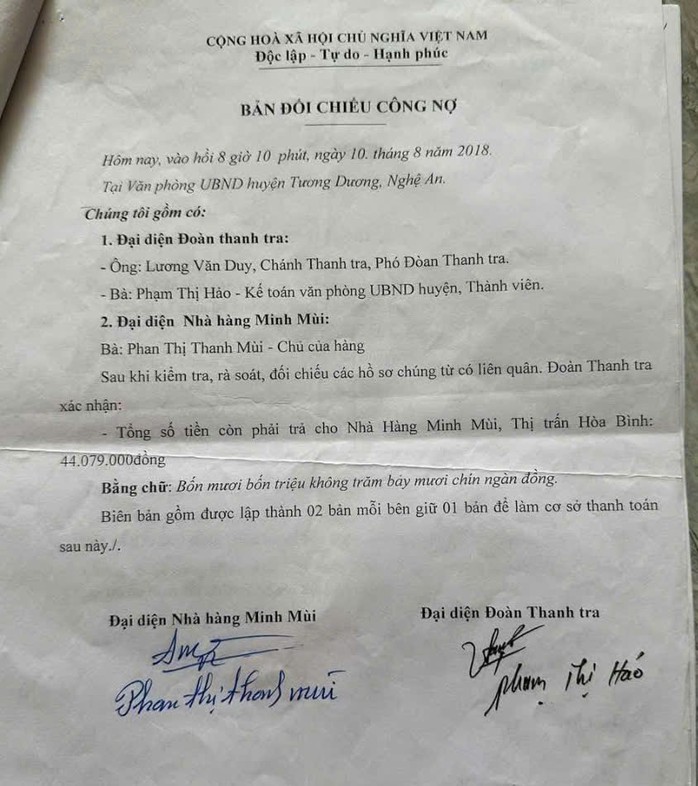 CỘNG HOÀ XÃ HỘI CHỦ NGHĨA VIỆT NAM
Độc lập - Tự do - Hạnh phúc
BẢN ĐỐI CHIẾU CÔNG NỢ
Hôm nay, vào hồi 8 giờ 10 phút, ngày 10. tháng 8 năm 2018.
Tại Văn phòng UBND huyện Tương Dương, Nghệ An.
Chúng tôi gồm có:
1. Đại diện Đoàn thanh tra:
- Ông: Lương Văn Duy, Chánh Thanh tra, Phó Đòan Thanh tra.
- Bà: Phạm Thị Hảo - Kế toán văn phòng UBND huyện, Thành viên.
2. Đại diện Nhà hàng Minh Mùi:
Bà: Phan Thị Thanh Mùi - Chủ cửa hàng
Sau khi kiểm tra, rà soát, đối chiếu các hồ sơ chứng từ có liên quân. Đoàn Thanh tra
xác nhận:
- Tổng số tiền còn phải trả cho Nhà Hàng Minh Mùi, Thị trấn Hòa Bình:
44.079.000đồng
Bằng chữ: Bốn mươi bốn triệu không trăm bảy mươi chín ngàn đồng.
Biên bản gồm được lập thành 02 bản mỗi bên giữ 01 bản để làm cơ sở thanh toán
sau này./.
Đại diện Nhà hàng Minh Mùi
Đại diện Đoàn Thanh tra
Phan Thị Thanh Mùi
Phạm Thị Hảo